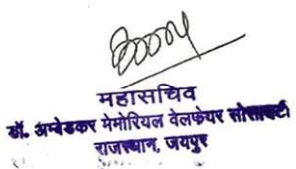 महासचिव
डॉ. अम्बेडकर मेमोरियल वेलफेयर सोसायटी
राजस्थान, जयपुर